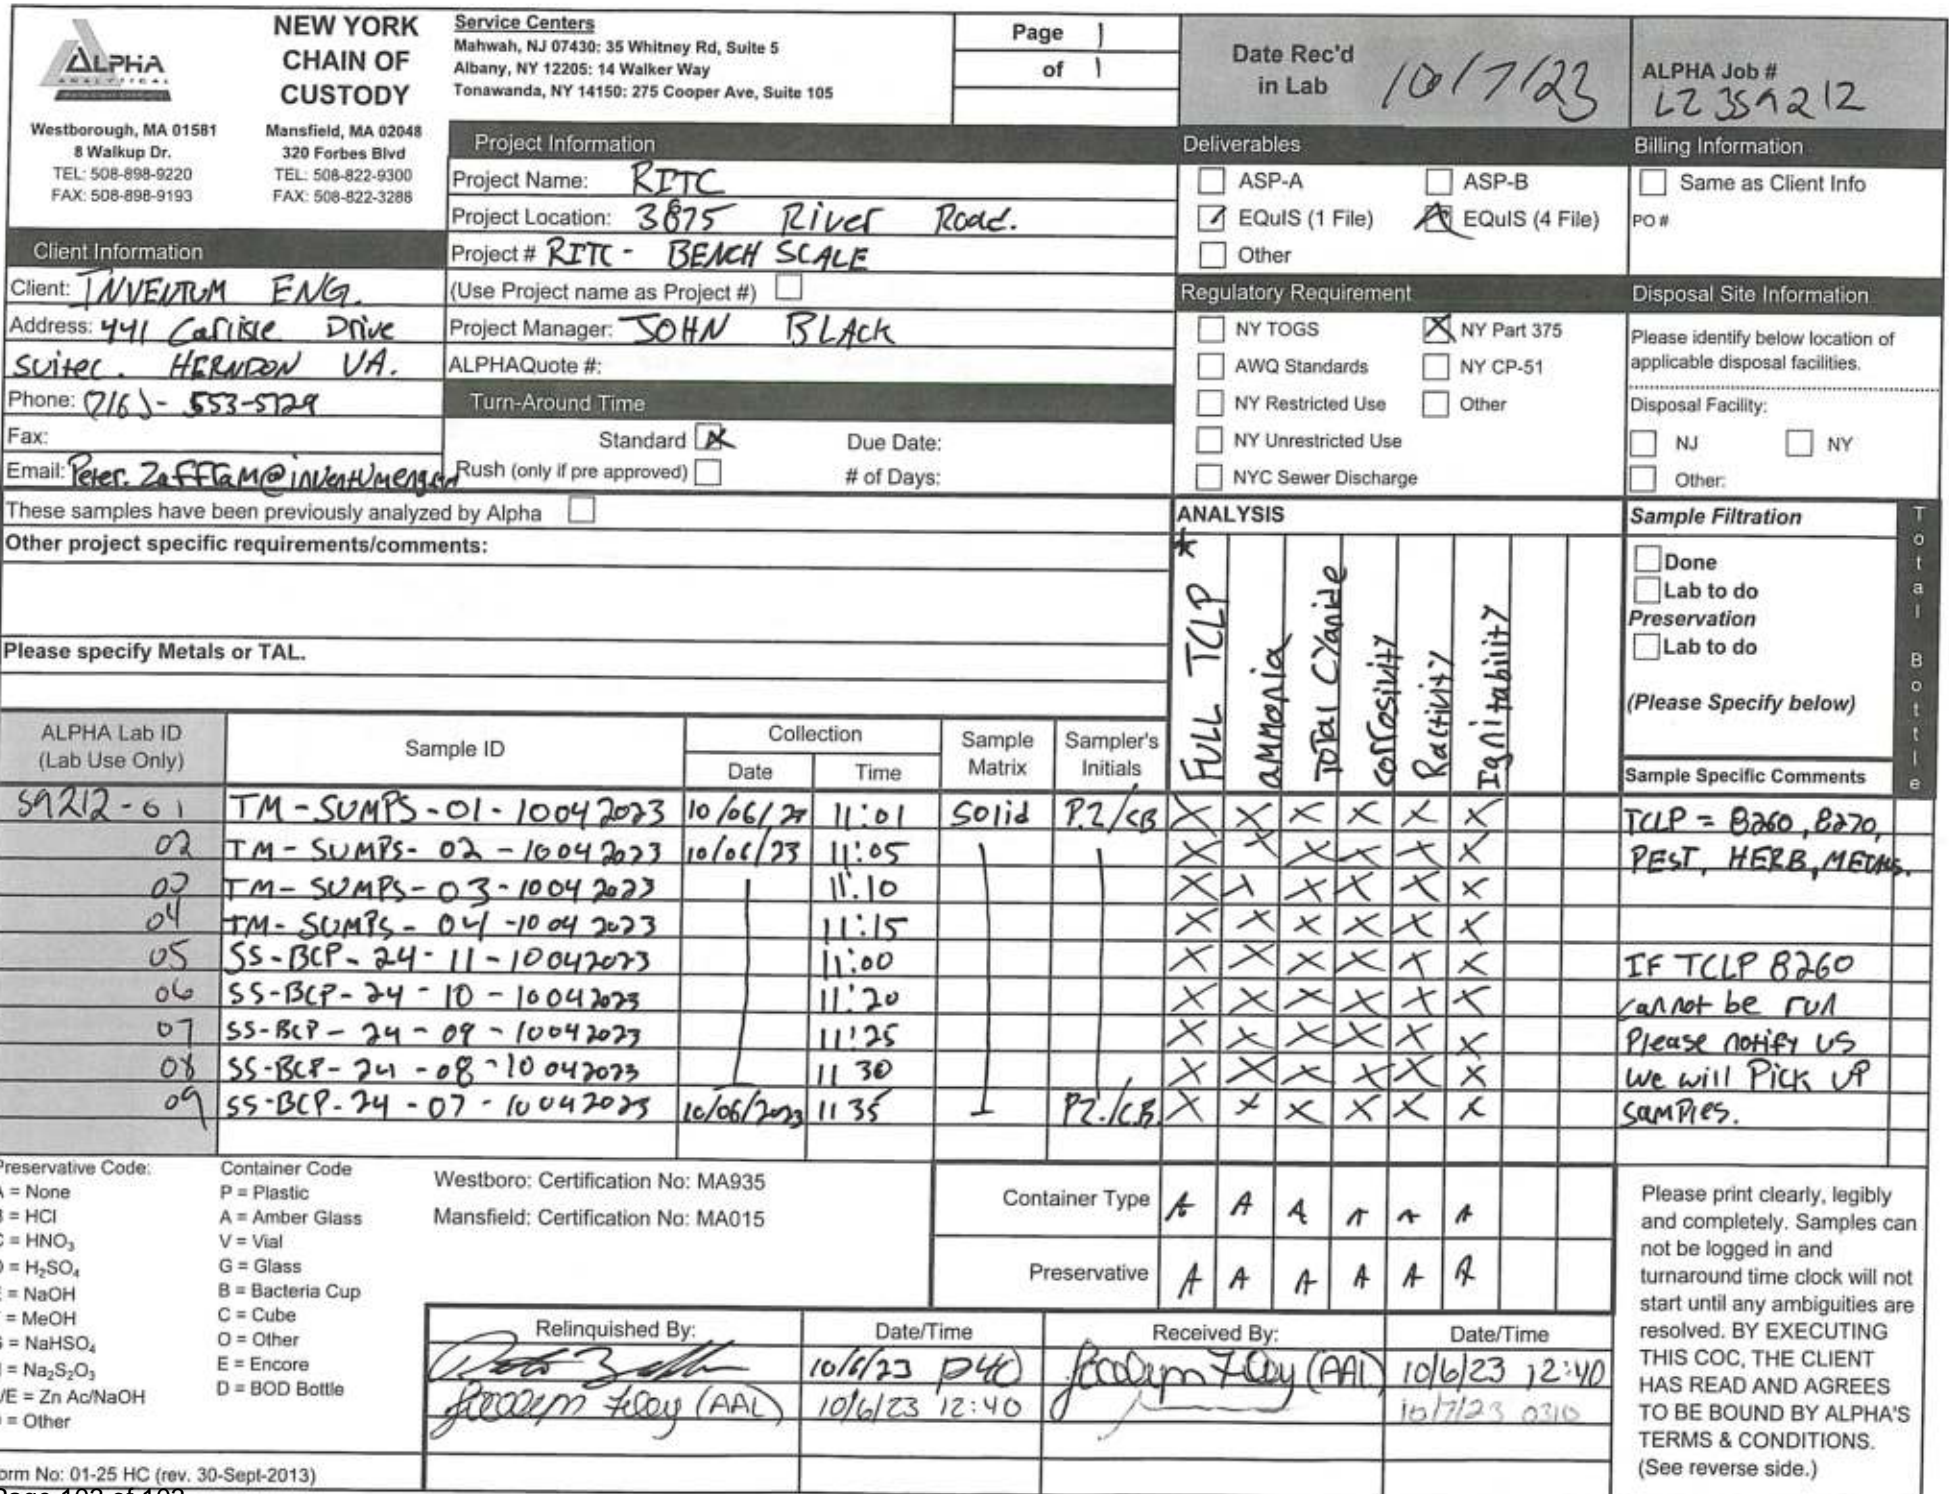 ALPHA
ANALYTICAL
NEW YORK
CHAIN OF
CUSTODY
Westborough, MA 01581
8 Walkup Dr.
TEL: 508-898-9220
FAX: 508-898-9193
Mansfield, MA 02048
320 Forbes Blvd
TEL: 508-822-9300
FAX: 508-822-3288
Service Centers
Mahwah, NJ 07430: 35 Whitney Rd, Suite 5
Albany, NY 12205: 14 Walker Way
Tonawanda, NY 14150: 275 Cooper Ave, Suite 105
Page 1
of 1
Date Rec'd
in Lab 10/7/23
ALPHA Job #
L2359212
Client Information
Client: INVENTUM ENG.
Address: 441 Carlisle Drive
Suite C. HERNDON VA.
Phone: (716)- 553-5729
Fax:
Email: Peter.
Project Information
Project Name: RITC
Project Location: 3875 River Road.
Project # RITC - BENCH SCALE
(Use Project name as Project #)
Project Manager: JOHN BLACK
ALPHAQuote #:
Turn-Around Time
Standard X Due Date:
Rush (only if pre approved) # of Days:
Deliverables
ASP-A ASP-B
EQuIS (1 File) EQuIS (4 File)
Other
Regulatory Requirement
NY TOGS X NY Part 375
AWQ Standards NY CP-51
NY Restricted Use Other
NY Unrestricted Use
NYC Sewer Discharge
Billing Information
Same as Client Info
PO #
Disposal Site Information
Please identify below location of
applicable disposal facilities.
Disposal Facility:
NJ NY
Other:
These samples have been previously analyzed by Alpha
Other project specific requirements/comments:
Please specify Metals or TAL.
ANALYSIS
* FULL TCLP
ammonia
Total Cyanide
corrosivity
Ractivity
Ignitability
Sample Filtration
Done
Lab to do
Preservation
Lab to do
(Please Specify below)
Total Bottle
ALPHA Lab ID
(Lab Use Only)
Sample ID
Collection
Date Time
Sample
Matrix
Sampler's
Initials
Sample Specific Comments
59212-01 TM-SUMPS-01-10042023 10/06/23 11:01 Solid P.Z/CB X X X X X X TCLP = 8260, 8270,
02 TM-SUMPS-02-10042023 10/06/23 11:05 X X X X X X PEST, HERB, METALS.
03 TM-SUMPS-03-10042023 11:10 X X X X X X
04 TM-SUMPS-04-10042023 11:15 X X X X X X
05 SS-BCP-24-11-10042023 11:00 X X X X X X IF TCLP 8260
06 SS-BCP-24-10-10042023 11:20 X X X X X X cannot be run
07 SS-BCP-24-09-10042023 11:25 X X X X X X Please notify us
08 SS-BCP-24-08-10042023 11 30 X X X X X X we will Pick up
09 SS-BCP-24-07-10042023 10/06/2023 11 35 P.Z./C.B. X X X X X X samples.
Preservative Code:
A = None
B = HCl
C = HNO3
D = H2SO4
E = NaOH
F = MeOH
G = NaHSO4
H = Na2S2O3
K/E = Zn Ac/NaOH
O = Other
Container Code
P = Plastic
A = Amber Glass
V = Vial
G = Glass
B = Bacteria Cup
C = Cube
O = Other
E = Encore
D = BOD Bottle
Westboro: Certification No: MA935
Mansfield: Certification No: MA015
Container Type A A A A A A
Preservative A A A A A A
Relinquished By: Date/Time Received By: Date/Time
10/6/23 (AAL) 10/6/23 12:40
(AAL) 10/6/23 12:40 10/7/23 0310
Please print clearly, legibly
and completely. Samples can
not be logged in and
turnaround time clock will not
start until any ambiguities are
resolved. BY EXECUTING
THIS COC, THE CLIENT
HAS READ AND AGREES
TO BE BOUND BY ALPHA'S
TERMS & CONDITIONS.
(See reverse side.)
Form No: 01-25 HC (rev. 30-Sept-2013)